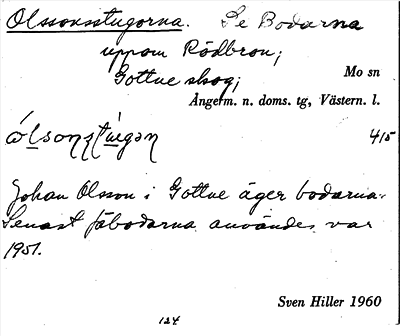 Olssonsstugorna. Se Bodarna
uppom Rödbron;
Gottne skog;
Mo sn
Ångerm. n. doms. tg, Västern. l.
415
Johan Olsson i Gottne äger bodarna.
Senast fäbodarna användes var
1951.
Sven Hiller 1960
124